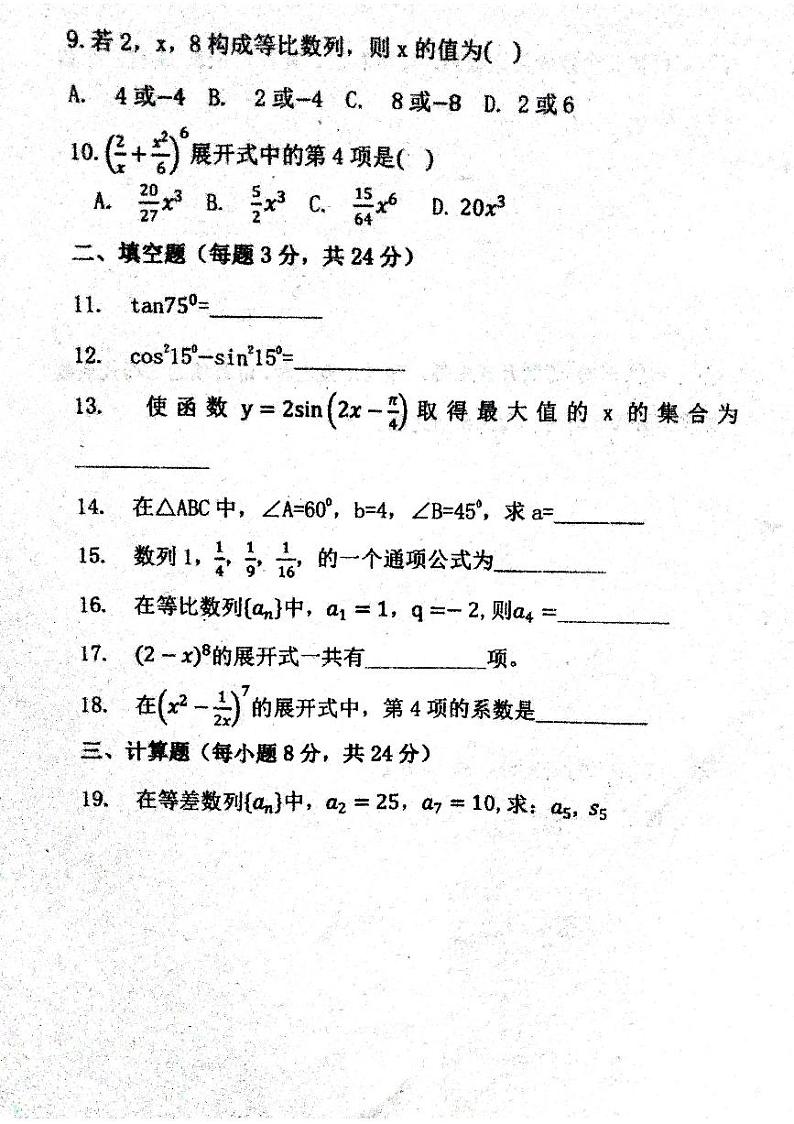 9.若2，x，8构成等比数列，则x的值为(   )
A.  4或−4  B.  2或−4  C.  8或−8  D. 2或6
10.(2/x + x²/6)⁶展开式中的第4项是(   )
A.  20/27 x³  B.  5/2 x³  C.  15/64 x⁶  D. 20x³
二、填空题（每题3分，共24分）
11.  tan75⁰=__________
12.  cos²15⁰−sin²15⁰=__________
13.  使函数 y = 2sin(2x − π/4)取得最大值的 x 的集合为
____________
14.  在△ABC中，∠A=60⁰，b=4，∠B=45⁰，求a=________
15.  数列1，1/4，1/9，1/16，的一个通项公式为__________
16.  在等比数列{aₙ}中，a₁ = 1，q =− 2,则a₄ =__________
17.  (2 − x)⁸的展开式一共有___________项。
18.  在(x² − 1/2x)⁷的展开式中，第4项的系数是__________
三、计算题（每小题8分，共24分）
19.  在等差数列{aₙ}中，a₂ = 25，a₇ = 10,求：a₅，s₅